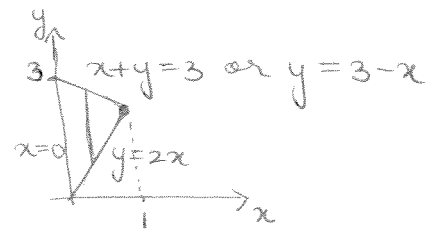 y
3 x+y=3 or y=3-x
x=0 y=2x
1 x